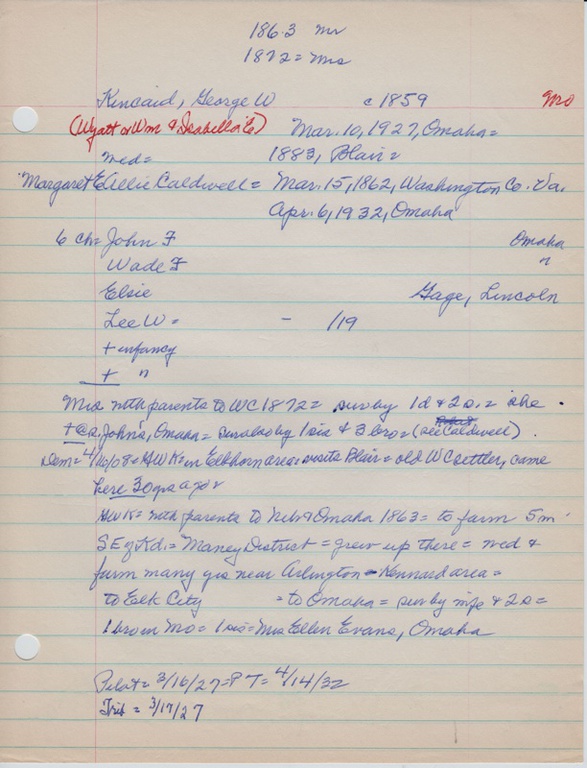 1863 Mr
1872 = Mrs
Kincaid, George W c1859 Mo
(Wyatt or Wm & Isabella E) Mar. 10, 1927, Omaha =
wed = 1883, Blair =
Margaret E Lillie Caldwell = Mar. 15, 1862, Washington Co. Va.
Apr. 6, 1932, Omaha
6 ch = John F Omaha
Wade F "
Elsie Gage, Lincoln
Lee W = - /19
+ infancy
+ "
Mrs with parents to WC 1872 = surv by 1d & 2s. = she
+ @ s. John's, Omaha = surv also by 1 sis & 3 bro = (see Caldwell)
Dem = 4/16/08 = GWK = in Elkhorn area = visits Blair = old WC settler, came
here 30 yrs ago
GWK = with parents to Neb & Omaha 1863 = to farm 5m
SE of Kd. = Maney District = grew up there = wed &
farm many yrs near Arlington - Kennard area =
to Elk City = to Omaha = surv by wife & 2s =
1 bro in Mo = 1 sis = Mrs Ellen Evans, Omaha
Pilot = 3/16/27 = PT = 4/14/32
Trib = 3/17/27